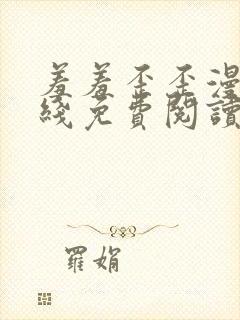 羞羞歪歪漫
綫免費閱讀
羅娟